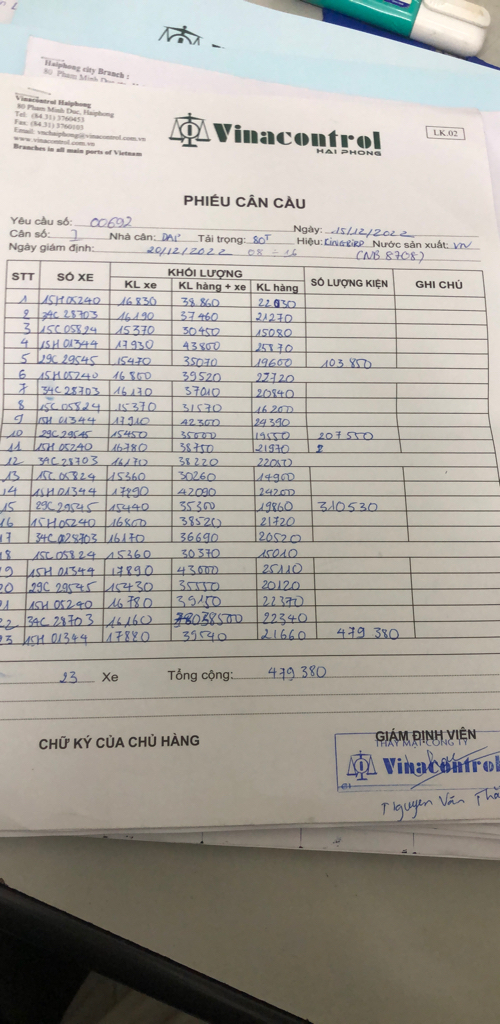 Haiphong city Branch :
Vinacontrol Haiphong
80 Pham Minh Duc, Haiphong
Tel: (84.31) 3760453
Fax: (84.31) 3760103
Email: vnchaiphong@vinacontrol.com.vn
www.vinacontrol.com.vn
Branches in all main ports of Vietnam
Vinacontrol
HAI PHONG
LK.02
PHIẾU CÂN CẦU
Yêu cầu số: 00692 Ngày: 15/12/2022
Cân số: 1 Nhà cân: DAP Tải trọng: 80T Hiệu: Nước sản xuất: VN
Ngày giám định: 20/12/2022 08 - 16 (NB.8708)
STT SỐ XE KHỐI LƯỢNG SỐ LƯỢNG KIỆN GHI CHÚ
KL xe KL hàng + xe KL hàng
1 15H05240 16830 38860 22030
2 34C28703 16190 37460 21270
3 15C05824 15370 30450 15080
4 15H01344 17930 43800 25870
5 29C29545 15470 35070 19600 103850
6 15H05240 16800 39520 22720
7 34C28703 16170 37010 20840
8 15C05824 15370 31570 16200
9 15H01344 17910 42300 24390
10 29C29545 15450 35000 19550 207550
11 15H05240 16780 38750 21970
12 34C28703 16170 38220 22050
13 15C05824 15360 30260 14900
14 15H01344 17890 42090 24200
15 29C29545 15440 35300 19860 310530
16 15H05240 16800 38520 21720
17 34C28703 16170 36690 20520
18 15C05824 15360 30370 15010
19 15H01344 17890 43000 25110
20 29C29545 15430 35550 20120
21 15H05240 16780 39150 22370
22 34C28703 16160 38500 22340
23 15H01344 17880 39540 21660 479380
23 Xe Tổng cộng: 479380
CHỮ KÝ CỦA CHỦ HÀNG
GIÁM ĐỊNH VIÊN
THAY MẶT CÔNG TY
Vinacontrol
Nguyen Văn